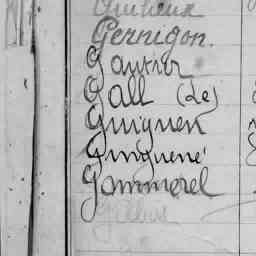 Gernigon.
Gautier
Gall (Le)
Guiguen
Guiguené
Gommerel